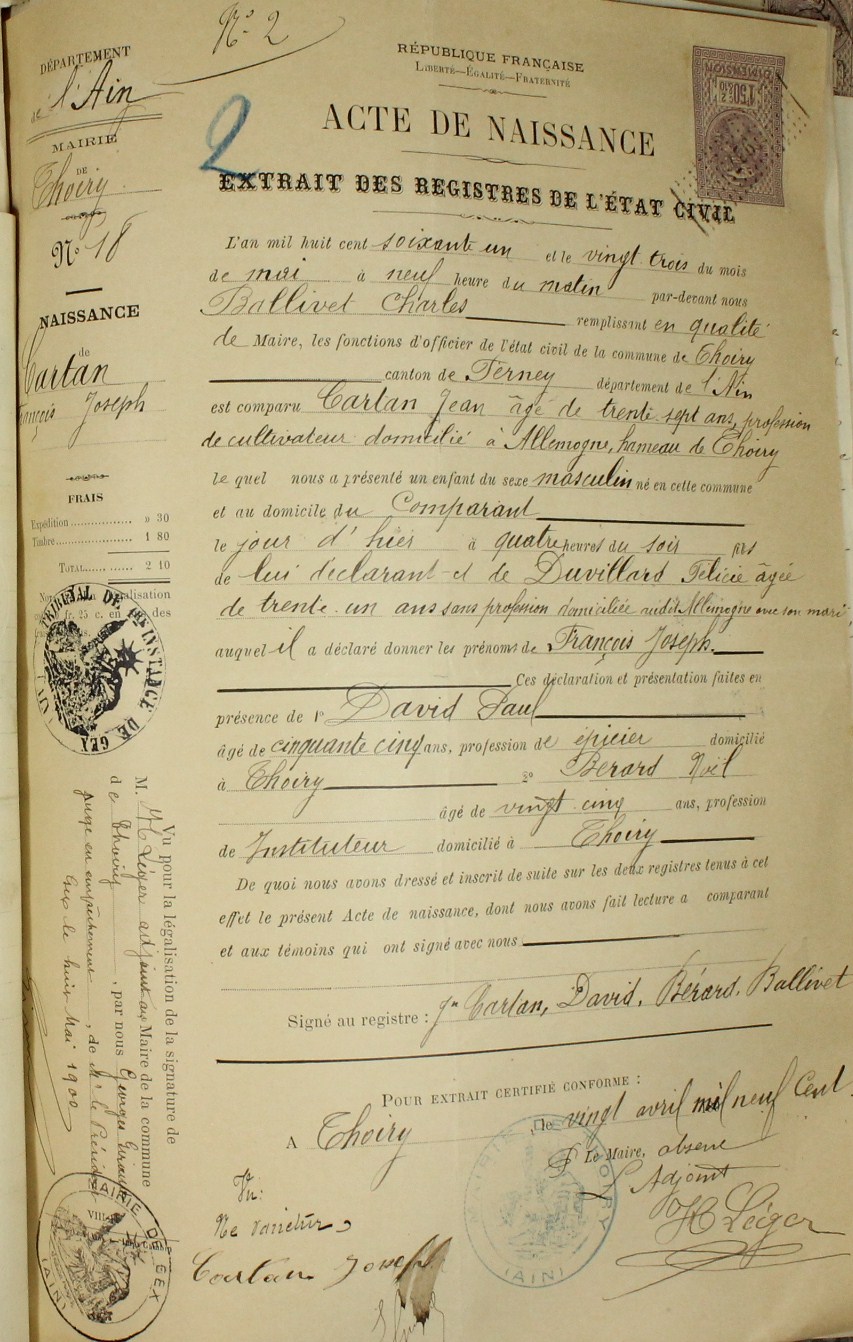 N° 2
DÉPARTEMENT
de l'Ain
MAIRIE
DE
Thoiry
N° 18
NAISSANCE
de
Cartan
François Joseph
FRAIS
Expédition ............... » 30
Timbre .................. 1 80
TOTAL ....... 2 10
TRIBUNAL DE 1ère INSTANCE DE GEX
(AIN)
Vu pour la légalisation de la signature de
M. H Léger adjoint au Maire de la commune
de Thoiry, par nous Georges
juge en empêchement, de Mr le Président
Gex le huit Mai 1900
MAIRIE DE GEX
(AIN)
2
RÉPUBLIQUE FRANÇAISE
LIBERTÉ—ÉGALITÉ—FRATERNITÉ
DIMENSION
ACTE DE NAISSANCE
EXTRAIT DES REGISTRES DE L'ÉTAT CIVIL
L'an mil huit cent soixante un et le vingt trois du mois
de mai à neuf heure du matin par-devant nous
Ballivet Charles remplissant en qualité
de Maire, les fonctions d'officier de l'état civil de la commune de Thoiry
canton de Ferney département de l'Ain
est comparu Cartan Jean âgé de trente sept ans, profession
de cultivateur domicilié à Allemogne, hameau de Thoiry
le quel nous a présenté un enfant du sexe masculin né en cette commune
et au domicile du Comparant
le jour d'hier à quatre heures du soir fils
de lui déclarant et de Duvillard Félicie âgée
de trente un ans sans profession domiciliée audit Allemogne avec son mari,
auquel il a déclaré donner les prénoms de François Joseph
Ces déclaration et présentation faites en
présence de 1° David Paul
âgé de cinquante cinq ans, profession de épicier domicilié
à Thoiry 2° Bérard Noël
âgé de vingt cinq ans, profession
de Instituteur domicilié à Thoiry
De quoi nous avons dressé et inscrit de suite sur les deux registres tenus à cet
effet le présent Acte de naissance, dont nous avons fait lecture a comparant
et aux témoins qui ont signé avec nous.
Signé au registre : Jn Cartan, David, Bérard, Ballivet
POUR EXTRAIT CERTIFIÉ CONFORME :
A Thoiry, le vingt avril mil neuf Cent
P Le Maire, absent
L'Adjoint
H Léger
(AIN)
Vu:
Cartan Joseph